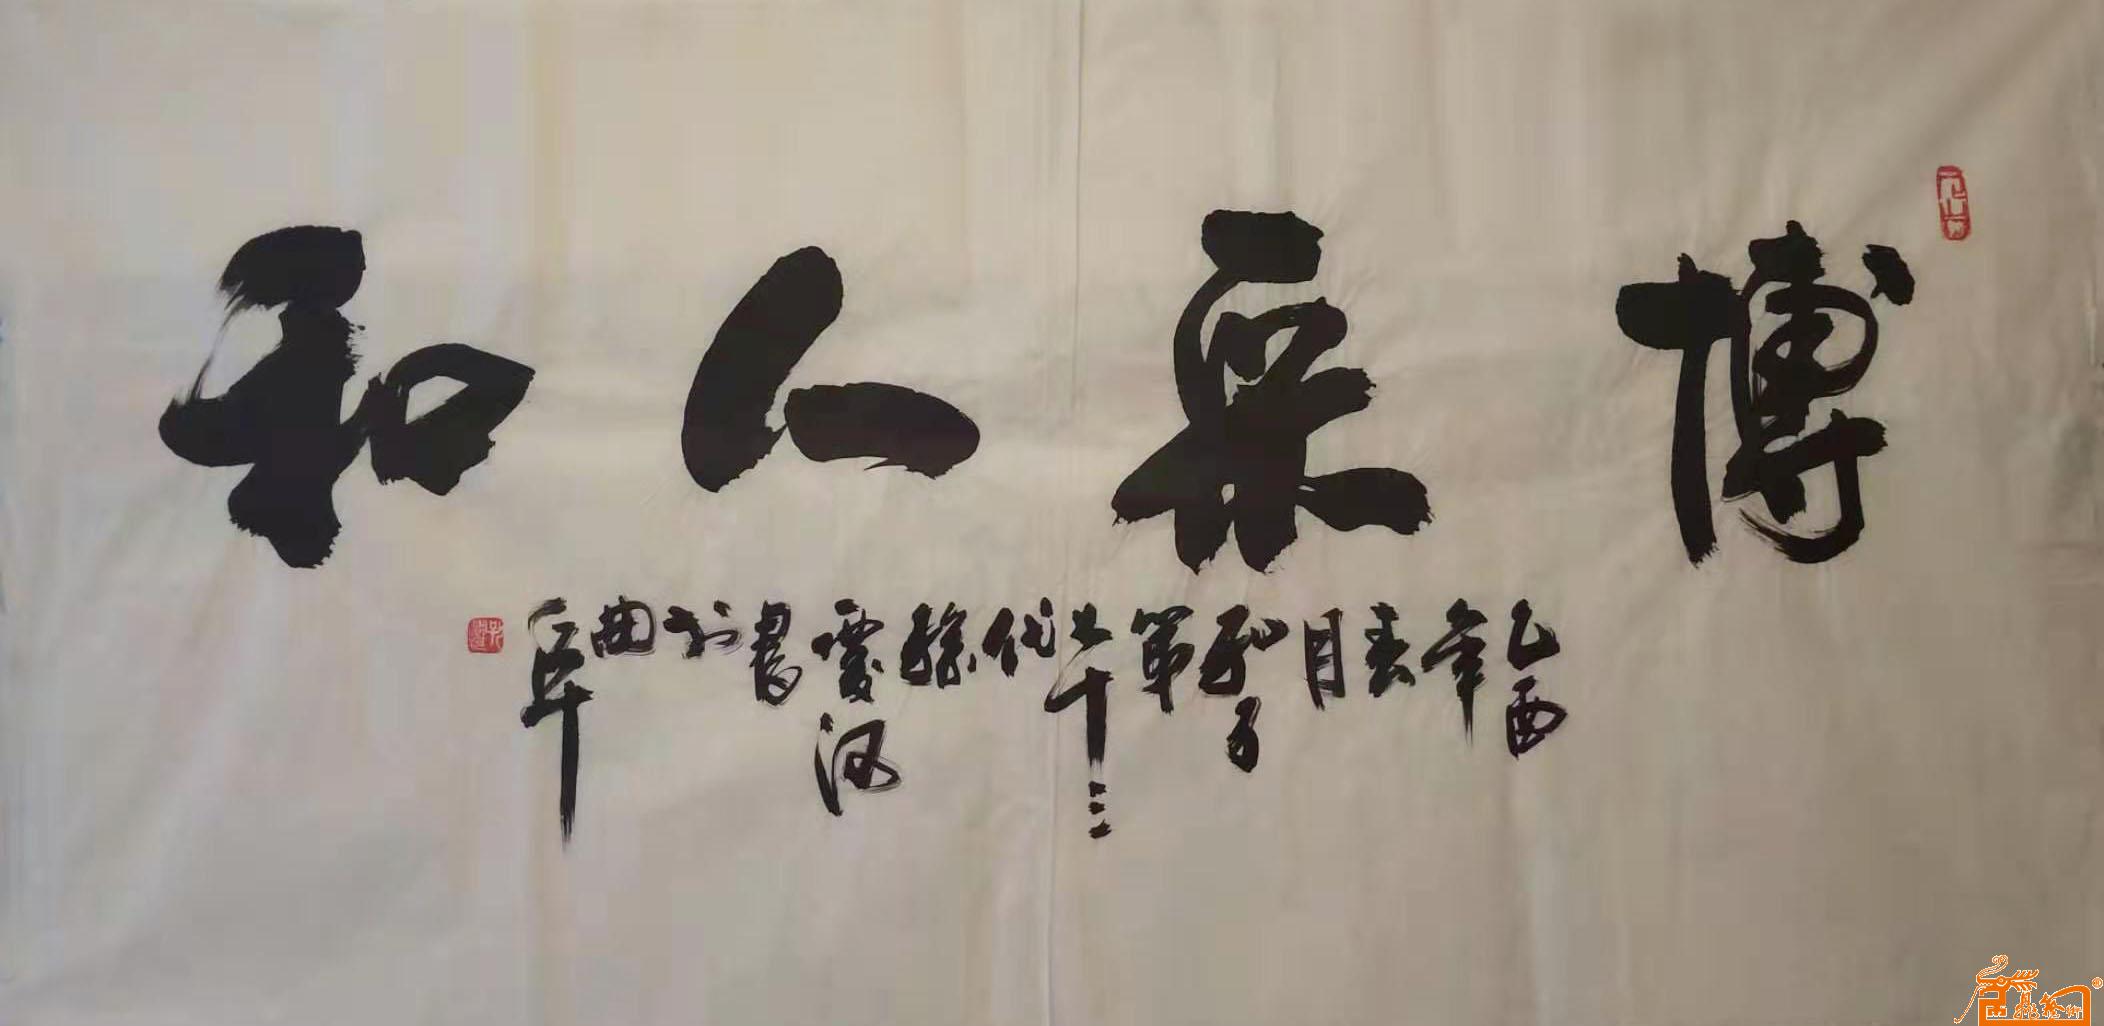 博采人和
乙酉年春月孔子第七十三代孫慶漢書於曲阜